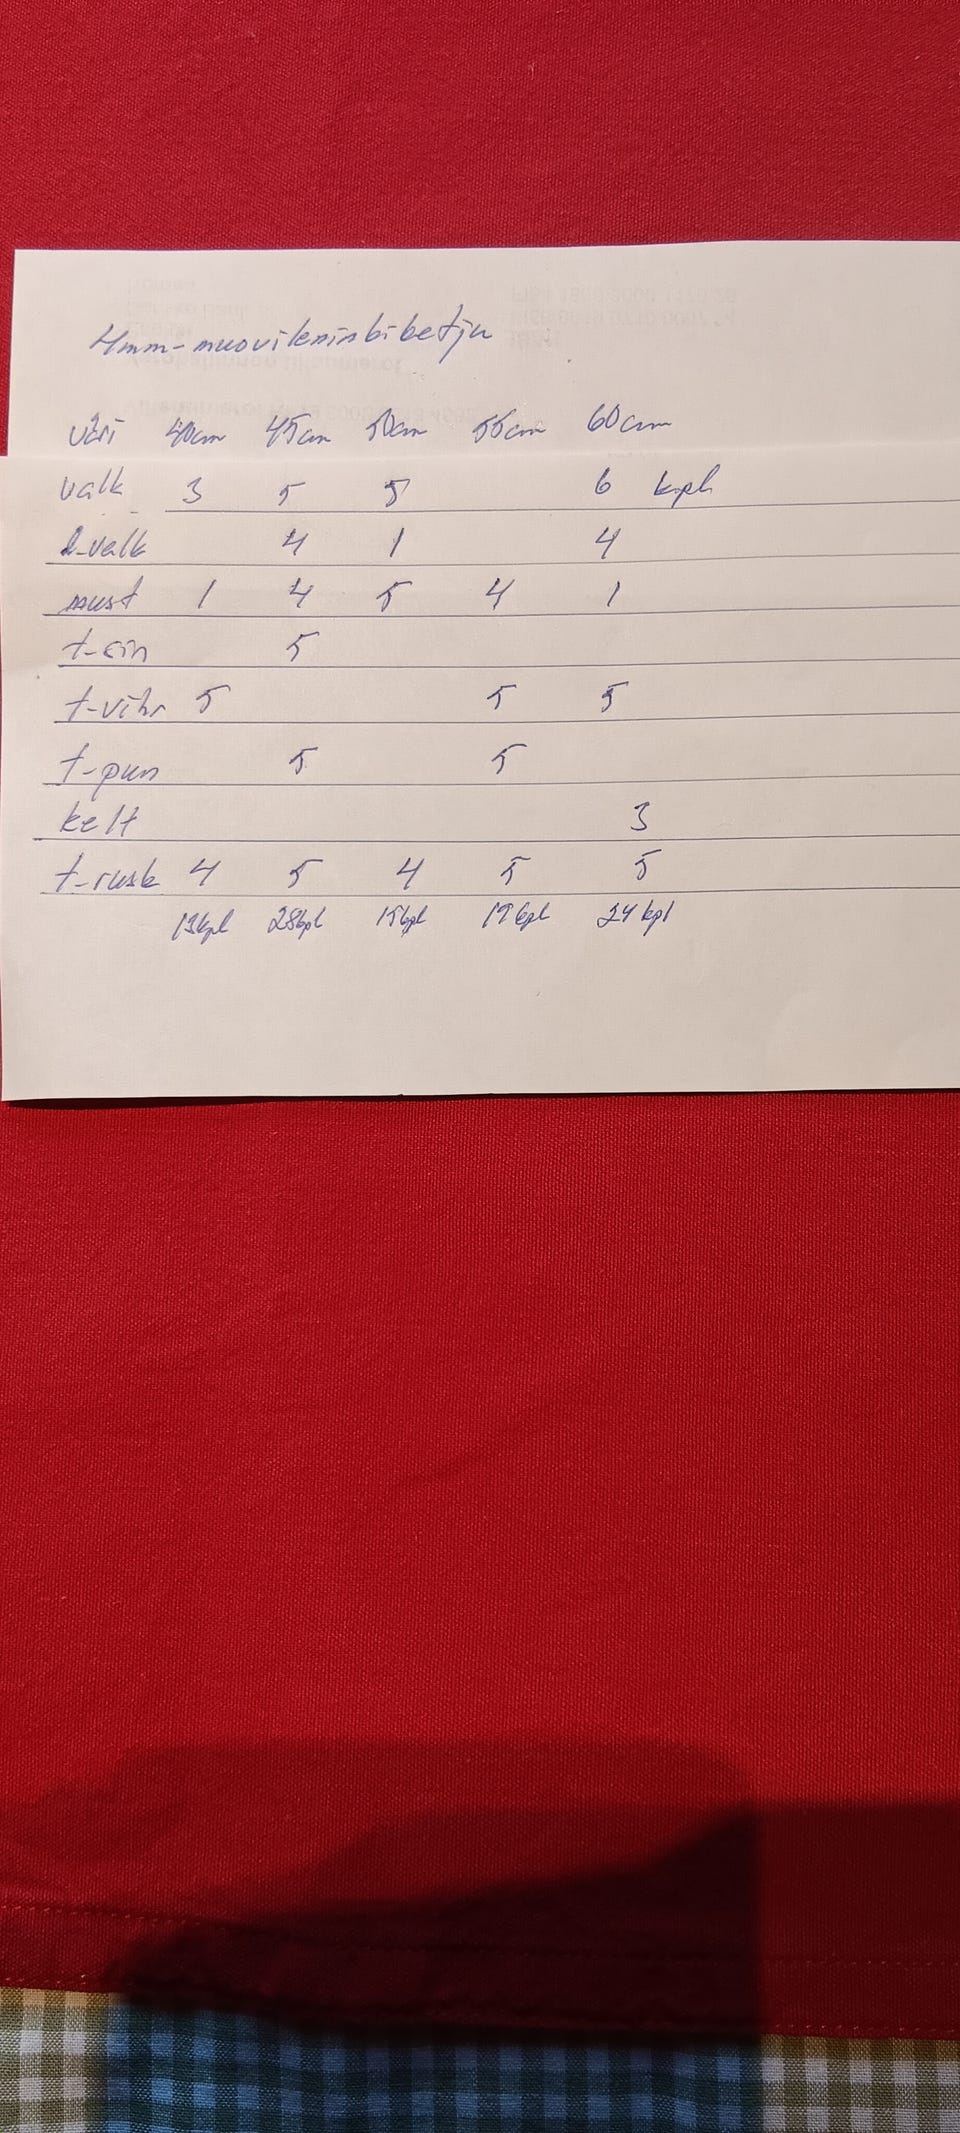 4mm-muovilenisbibetju
väri 40cm 45cm 50cm 55cm 60cm
valk 3 5 5 6 kpl
l-valk 4 1 4
must 1 4 5 4 1
t-sin 5
t-vihr 5 5 5
t-pun 5 5
kelt 3
t-rusk 4 5 4 5 5
13kpl 28kpl 15kpl 19kpl 24kpl